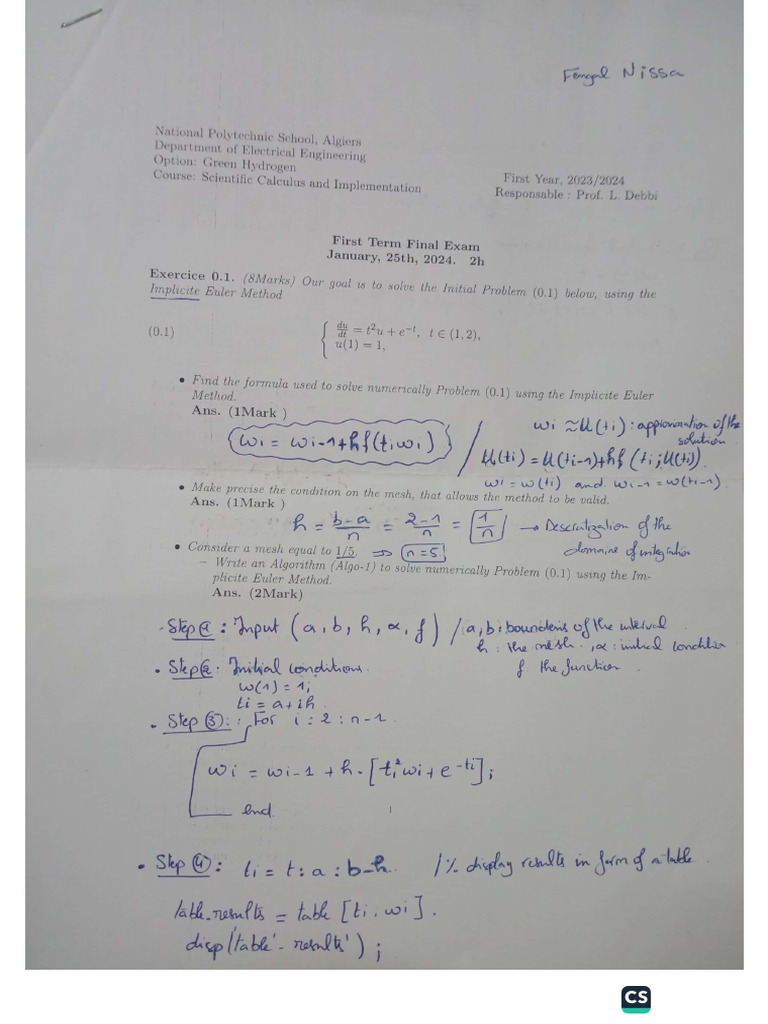 Nissa
National Polytechnic School, Algiers
Department of Electrical Engineering
Option: Green Hydrogen
Course: Scientific Calculus and Implementation
First Year, 2023/2024
Responsable : Prof. L. Debbi
First Term Final Exam
January, 25th, 2024. 2h
Exercice 0.1. (8Marks) Our goal is to solve the Initial Problem (0.1) below, using the
Implicite Euler Method
(0.1) { du/dt = t²u + e^{-t}, t ∈ (1, 2),
u(1) = 1,
• Find the formula used to solve numerically Problem (0.1) using the Implicite Euler
Method.
Ans. (1Mark )
wi = wi-1 + hf(ti wi) / wi ≈ U(ti) : approximation of the
solution
U(ti) = U(ti-1) + hf(ti; U(ti)).
wi = w(ti) and wi-1 = w(ti-1).
• Make precise the condition on the mesh, that allows the method to be valid.
Ans. (1Mark )
h = b-a/n = 2-1/n = 1/n → Descratization of the
domaine of integration
• Consider a mesh equal to 1/5. ⇒ n=5
– Write an Algorithm (Algo-1) to solve numerically Problem (0.1) using the Im-
plicite Euler Method.
Ans. (2Mark)
- Step 1 : Input (a, b, h, α, f) / a, b : of the interval
h : the mesh . , α : initial condition
f the function .
• Step 2 : Initial conditions.
w(1) = 1;
ti = a + ih.
• Step 3 : : For i : 2 : n-1.
wi = wi-1 + h · [ti² wi + e^{-ti}];
end.
• Step 4 : ti = t : a : b-h. /% display results in form of a table .
table_results = table [ti, wi].
disp('table'-results');
CS